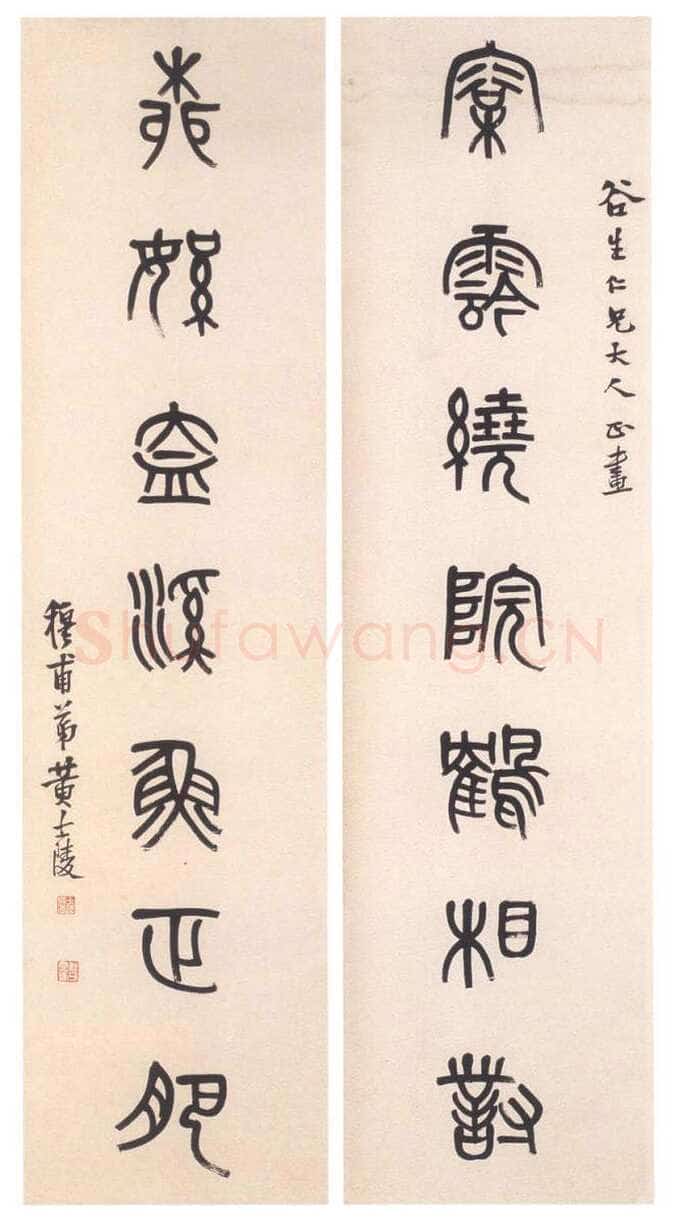 谷生仁兄大人正畫
繞院鶴相對
桺絮盇溪魚正肥
穆甫弟黃士陵
Shufawang.CN